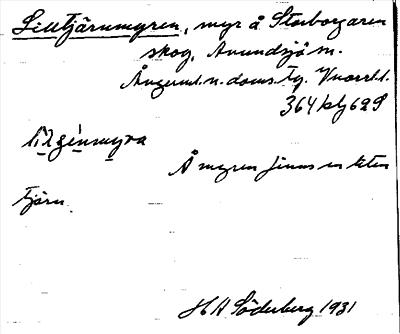 Lilltjärnmyren, myr å Storborgaren
skog, Anundsjö sn.
Ångerml. n. doms. tg. Vnorrl. l.
364 klj 62 S
Å myren finns en liten
tjärn.
H A Söderberg 1931